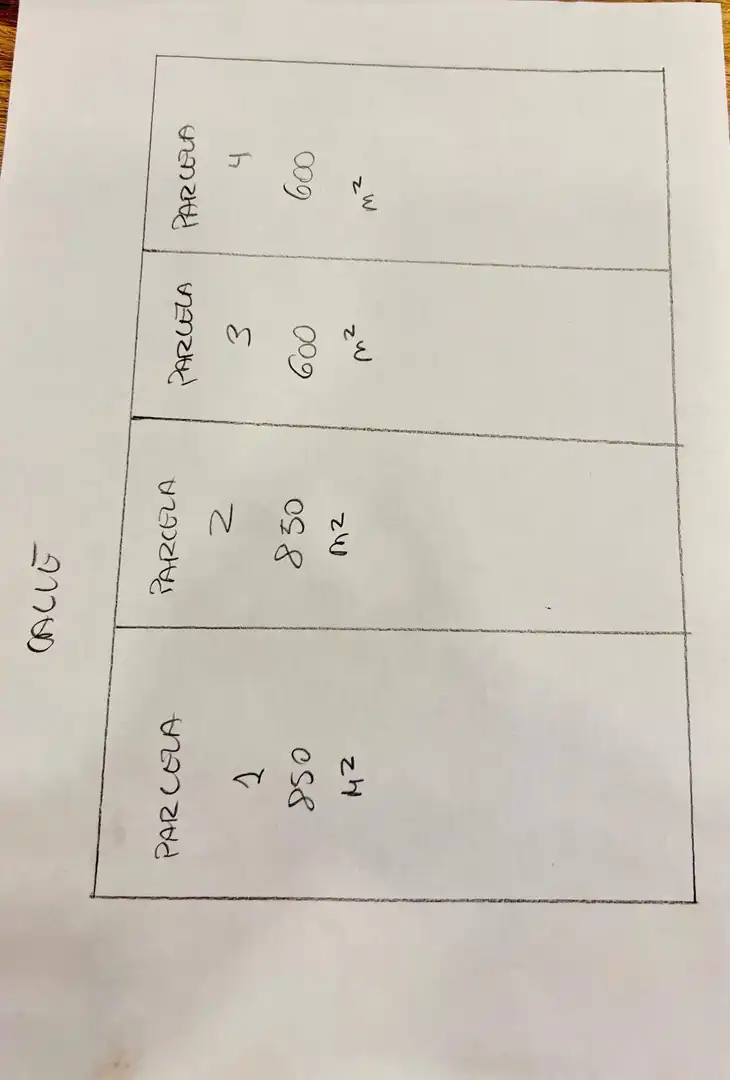 CALLE
PARCELA
1
850
M2
PARCELA
2
850
m2
PARCELA
3
600
m²
PARCELA
4
600
m²